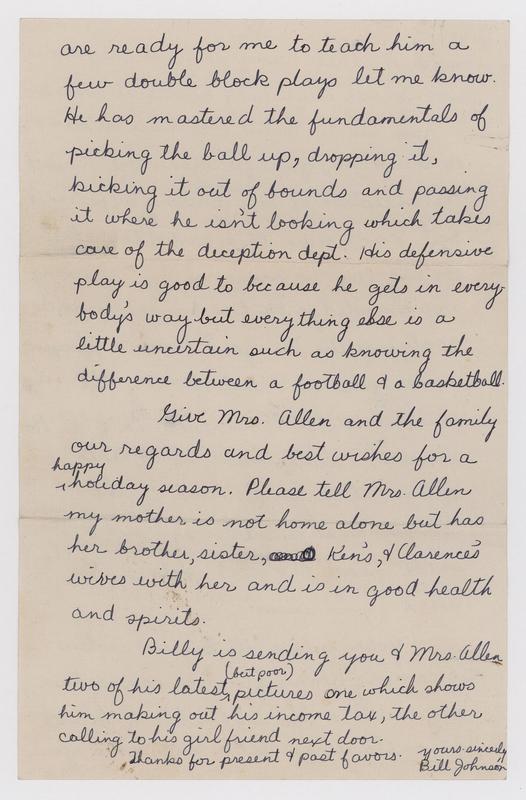 are ready for me to teach him a
few double block plays let me know.
He has mastered the fundamentals of
picking the ball up, dropping it,
kicking it out of bounds and passing
it where he isn't looking which takes
care of the deception dept. His defensive
play is good to because he gets in every-
body's way but everything else is a
little uncertain such as knowing the
difference between a football & a basketball.
Give Mrs. Allen and the family
our regards and best wishes for a
happy
holiday season. Please tell Mrs. Allen
my mother is not home alone but has
her brother, sister, Ken's, & Clarence's
wives with her and is in good health
and spirits.
Billy is sending you & Mrs. Allen
(but poor)
two of his latest pictures one which shows
him making out his income tax, the other
calling to his girl friend next door.
Thanks for present & past favors.
yours sincerely
Bill Johnson